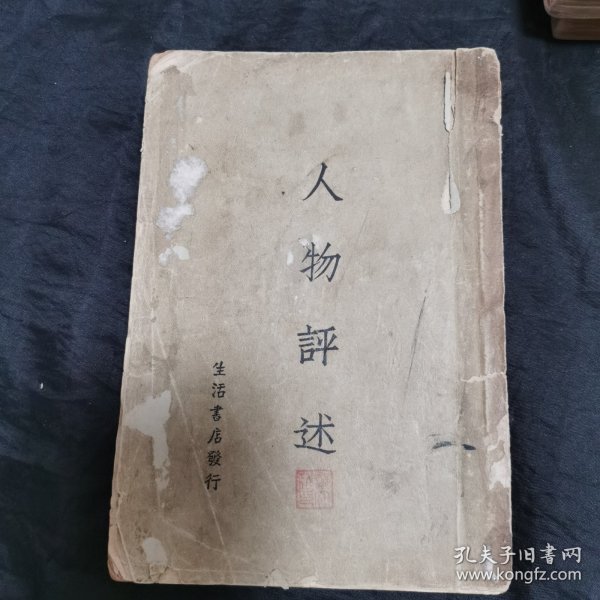 人物評述
生活書店發行
孔夫子旧书网
www.kongfz.com